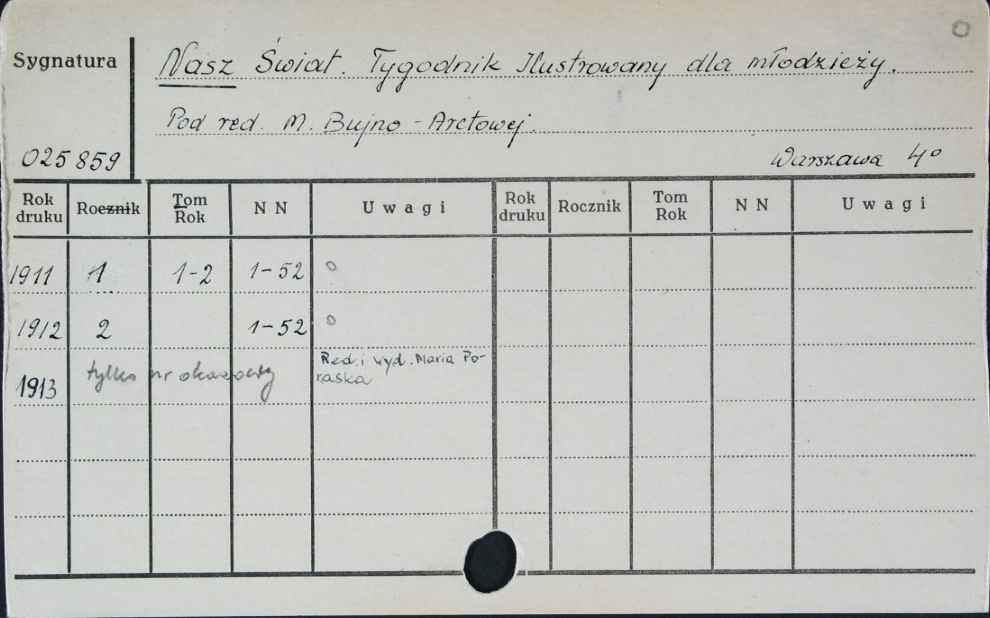 Sygnatura
Nasz Świat. Tygodnik Ilustrowany dla młodzieży.
Pod red. M. Bujno-Arctowej.
025859
Warszawa 4°
Rok druku Rocznik Tom Rok NN Uwagi Rok druku Rocznik Tom Rok NN Uwagi
1911 1 1-2 1-52 o
1912 2 1-52 o
1913 tylko nr okazowy Red. i wyd. Maria Po-
raska